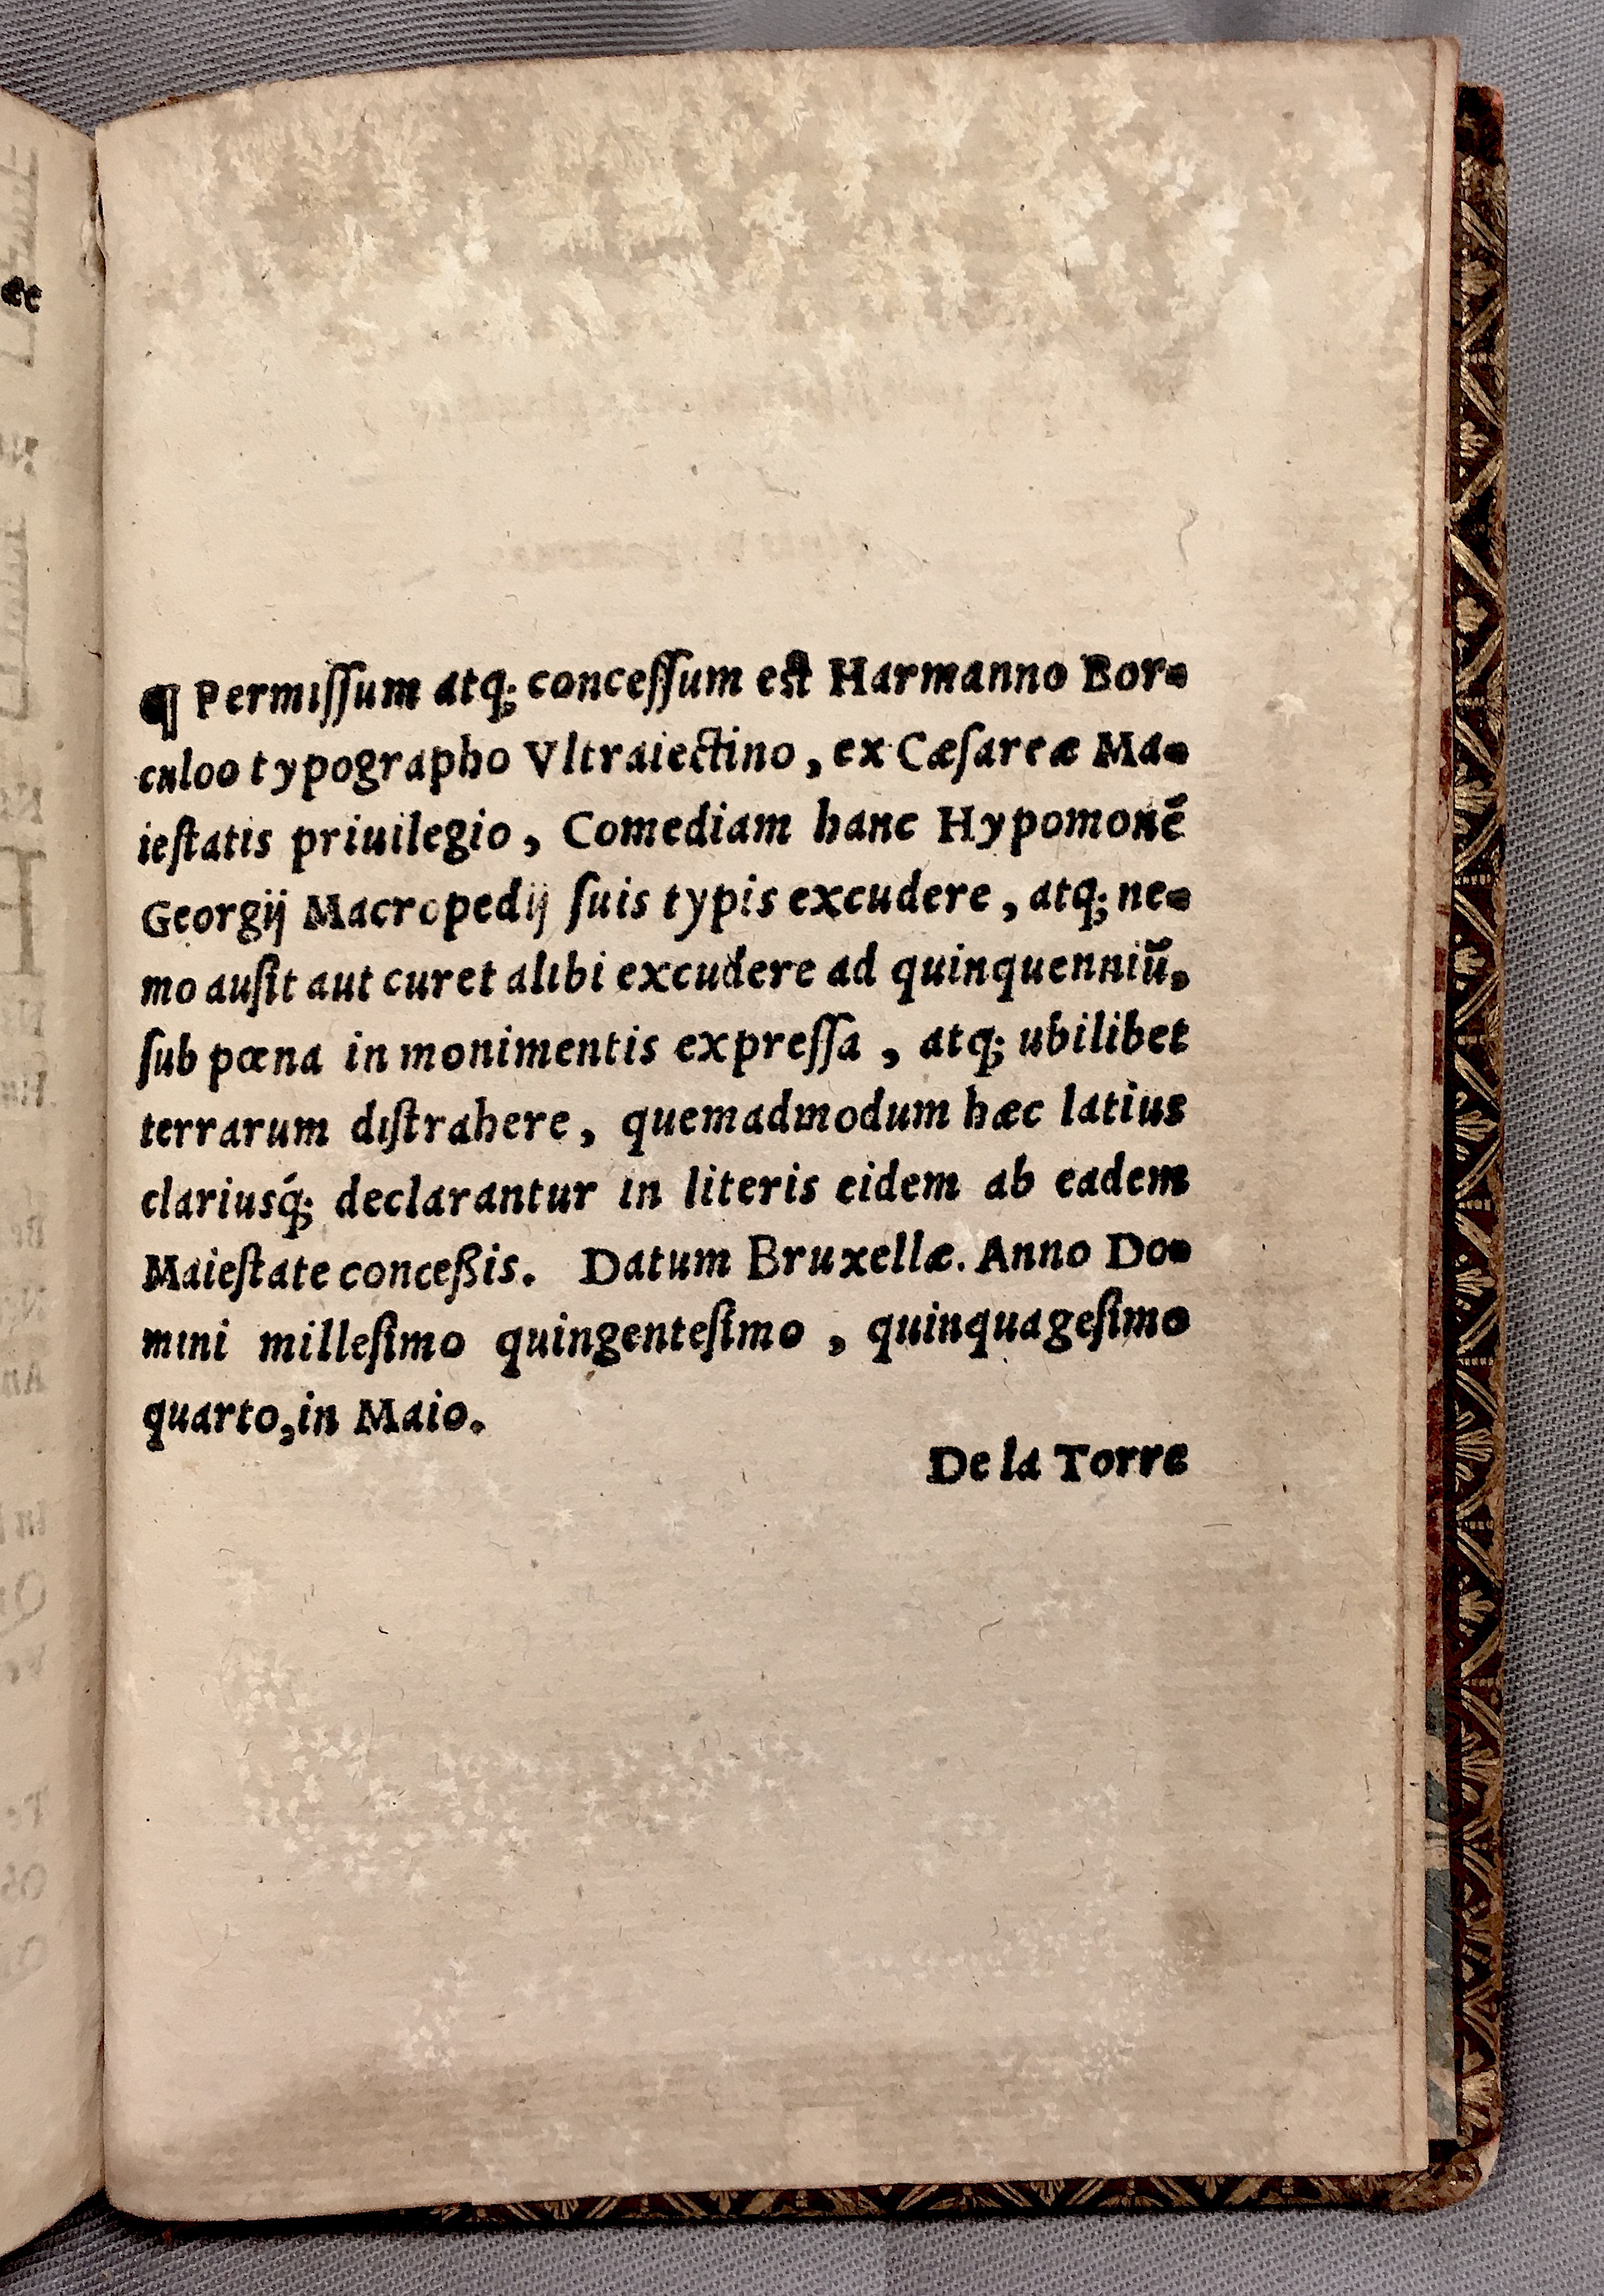 ¶ Permiſſum atq; conceſſum eſt Harmanno Bor-
culoo typographo Vltraiectino, ex Cæſareæ Ma-
ieſtatis priuilegio, Comediam hanc Hypomonẽ
Georgij Macropedij ſuis typis excudere, atq; ne-
mo auſit aut curet alibi excudere ad quinquenniũ,
ſub pœna in monimentis expreſſa, atq; ubilibet
terrarum diſtrahere, quemadmodum hæc latius
clariusq́; declarantur in literis eidem ab eadem
Maieſtate conceßis. Datum Bruxellæ. Anno Do-
mini milleſimo quingenteſimo, quinquageſimo
quarto, in Maio.
De la Torre